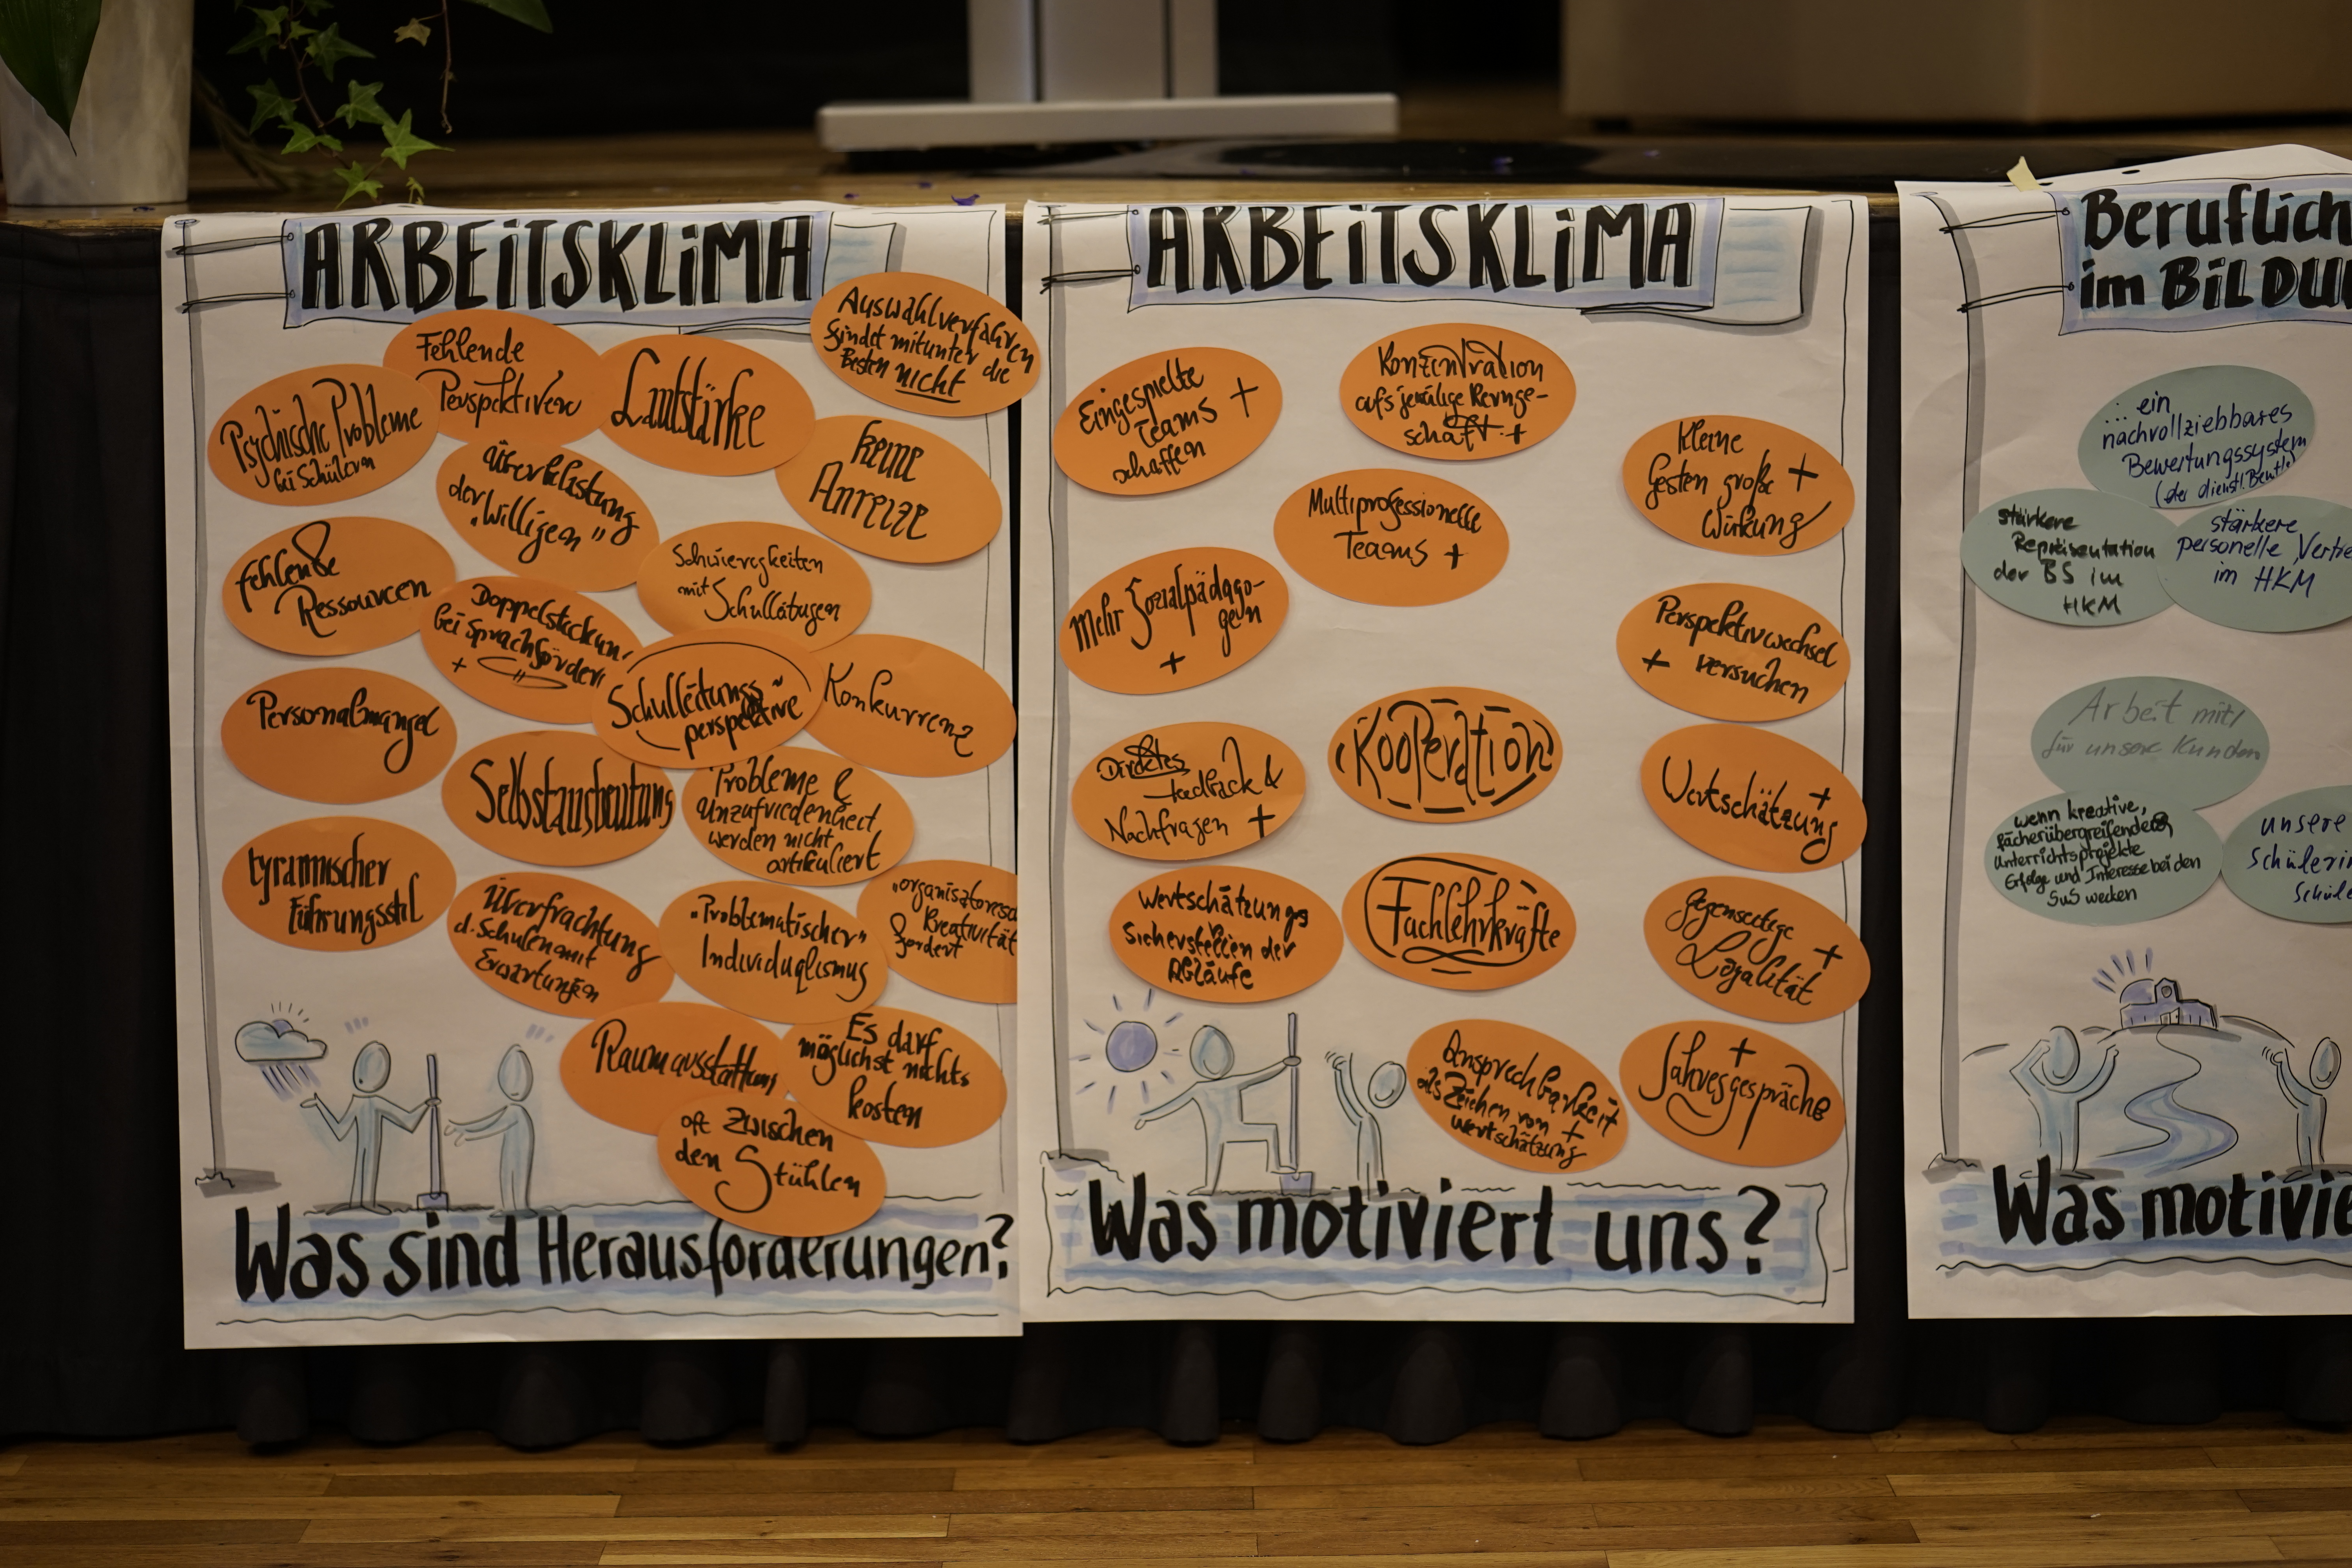 ARBEITSKLIMA
Auswahlverfahren
findet mitunter die
Besten nicht
Fehlende
Perspektiven
Lautstärke
Psychische Probleme
bei Schülern
Überlastung
der "Willigen"
keine
Anreize
fehlende
Ressourcen
Schwierigkeiten
mit Schulleitungen
Doppelsteckun
bei Sprachförder
+
Schulleitungs
perspektive
Konkurrenz
Personalmangel
Selbstausbeutung
Probleme &
Unzufriedenheit
werden nicht
artikuliert
tyrannischer
Führungsstil
Überfrachtung
d. Schulen mit
Erwartungen
"Problematischer"
Individualismus
Kreativität
fordert
Raumausstattung
Es darf
möglichst nichts
kosten
oft zwischen
den Stühlen
Was sind Herausforderungen?
ARBEITSKLIMA
Eingespielte
Teams +
schaffen
Konzentration
aufs jeweilige Kernge-
schäft +
Kleine
Gesten große +
Wirkung
Multiprofessionelle
Teams +
Mehr Sozialpädago-
gen
+
Perspektivwechsel
+ versuchen
Kooperation
Direktes
Feedback &
Nachfragen +
+
Wertschätzung
Wertschätzung
Sicherstellen der
Abläufe
Fachlehrkräfte
Gegenseitige
Loyalität +
Ansprechbarkeit
als Zeichen von +
Wertschätzung
+
Jahresgespräche
Was motiviert uns?
Beruflich
im BILDU
... ein
nachvollziehbares
Bewertungssystem
(der dienstl. Beurtlg)
stärkere
Repräsentation
der BS im
HKM
stärkere
personelle Vertre
im HKM
Arbeit mit/
für unsere Kunden
wenn kreative,
fächerübergreifende
Unterrichtsprojekte
Erfolge und Interesse bei den
SuS wecken
unsere
Schülerin
Schüle
Was motivie